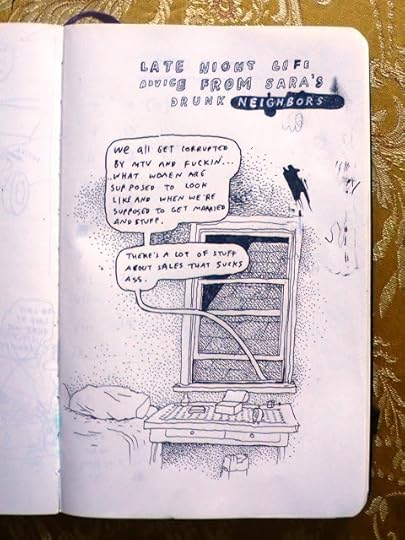 LATE NIGHT LIFE
ADVICE FROM SARA'S
DRUNK NEIGHBORS
WE ALL GET CORRUPTED
BY MTV AND FUCKIN...
WHAT WOMEN ARE
SUPPOSED TO LOOK
LIKE AND WHEN WE'RE
SUPPOSED TO GET MARRIED
AND STUFF.
THERE'S A LOT OF STUFF
ABOUT SALES THAT SUCKS
ASS.